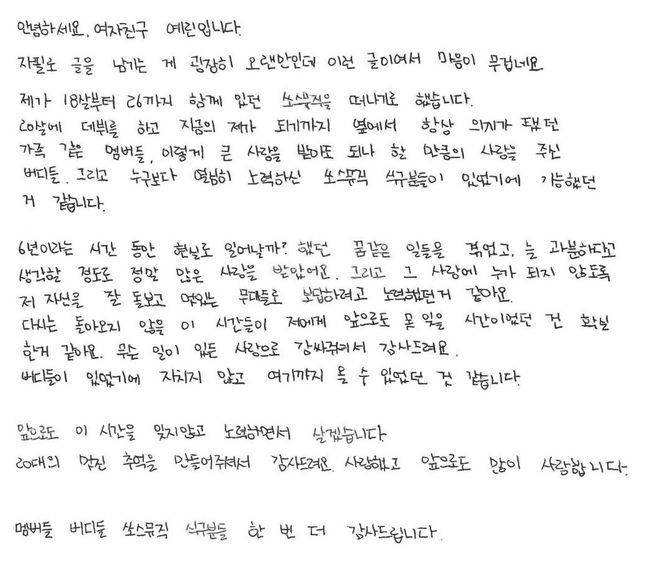 안녕하세요. 여자친구 예린입니다.
자필로 글을 남기는 게 굉장히 오랜만인데 이런 글이여서 마음이 무겁네요
제가 18살부터 26까지 함께 있던 쏘스뮤직을 떠나기로 했습니다.
20살에 데뷔를 하고 지금의 제가 되기까지 옆에서 항상 의지가 됐던
가족 같은 멤버들, 이렇게 큰 사랑을 받아도 되나 한 만큼의 사랑을 주신
버디들. 그리고 누구보다 열심히 노력하신 쏘스뮤직 식구분들이 있었기에 가능했던
거 같습니다.
6년이라는 시간 동안 현실로 일어날까? 했던 꿈같은 일들을 겪었고, 늘 과분하다고
생각할 정도로 정말 많은 사랑을 받았어요. 그리고 그 사랑에 누가 되지 않도록
저 자신을 잘 돌보고 멋있는 무대들로 보답하려고 노력했던거 같아요.
다시는 돌아오지 않을 이 시간들이 저에게 앞으로도 못 잊을 시간이었던 건 확실
한거 같아요. 무슨 일이 있든 사랑으로 감싸줘서 감사드려요.
버디들이 있었기에 지치지 않고 여기까지 올 수 있었던 것 같습니다.
앞으로도 이 시간을 잊지않고 노력하면서 살겠습니다
20대의 멋진 추억을 만들어주셔서 감사드려요. 사랑했고 앞으로도 많이 사랑합니다.
멤버들 버디들 쏘스뮤직 식구분들 한 번 더 감사드립니다.